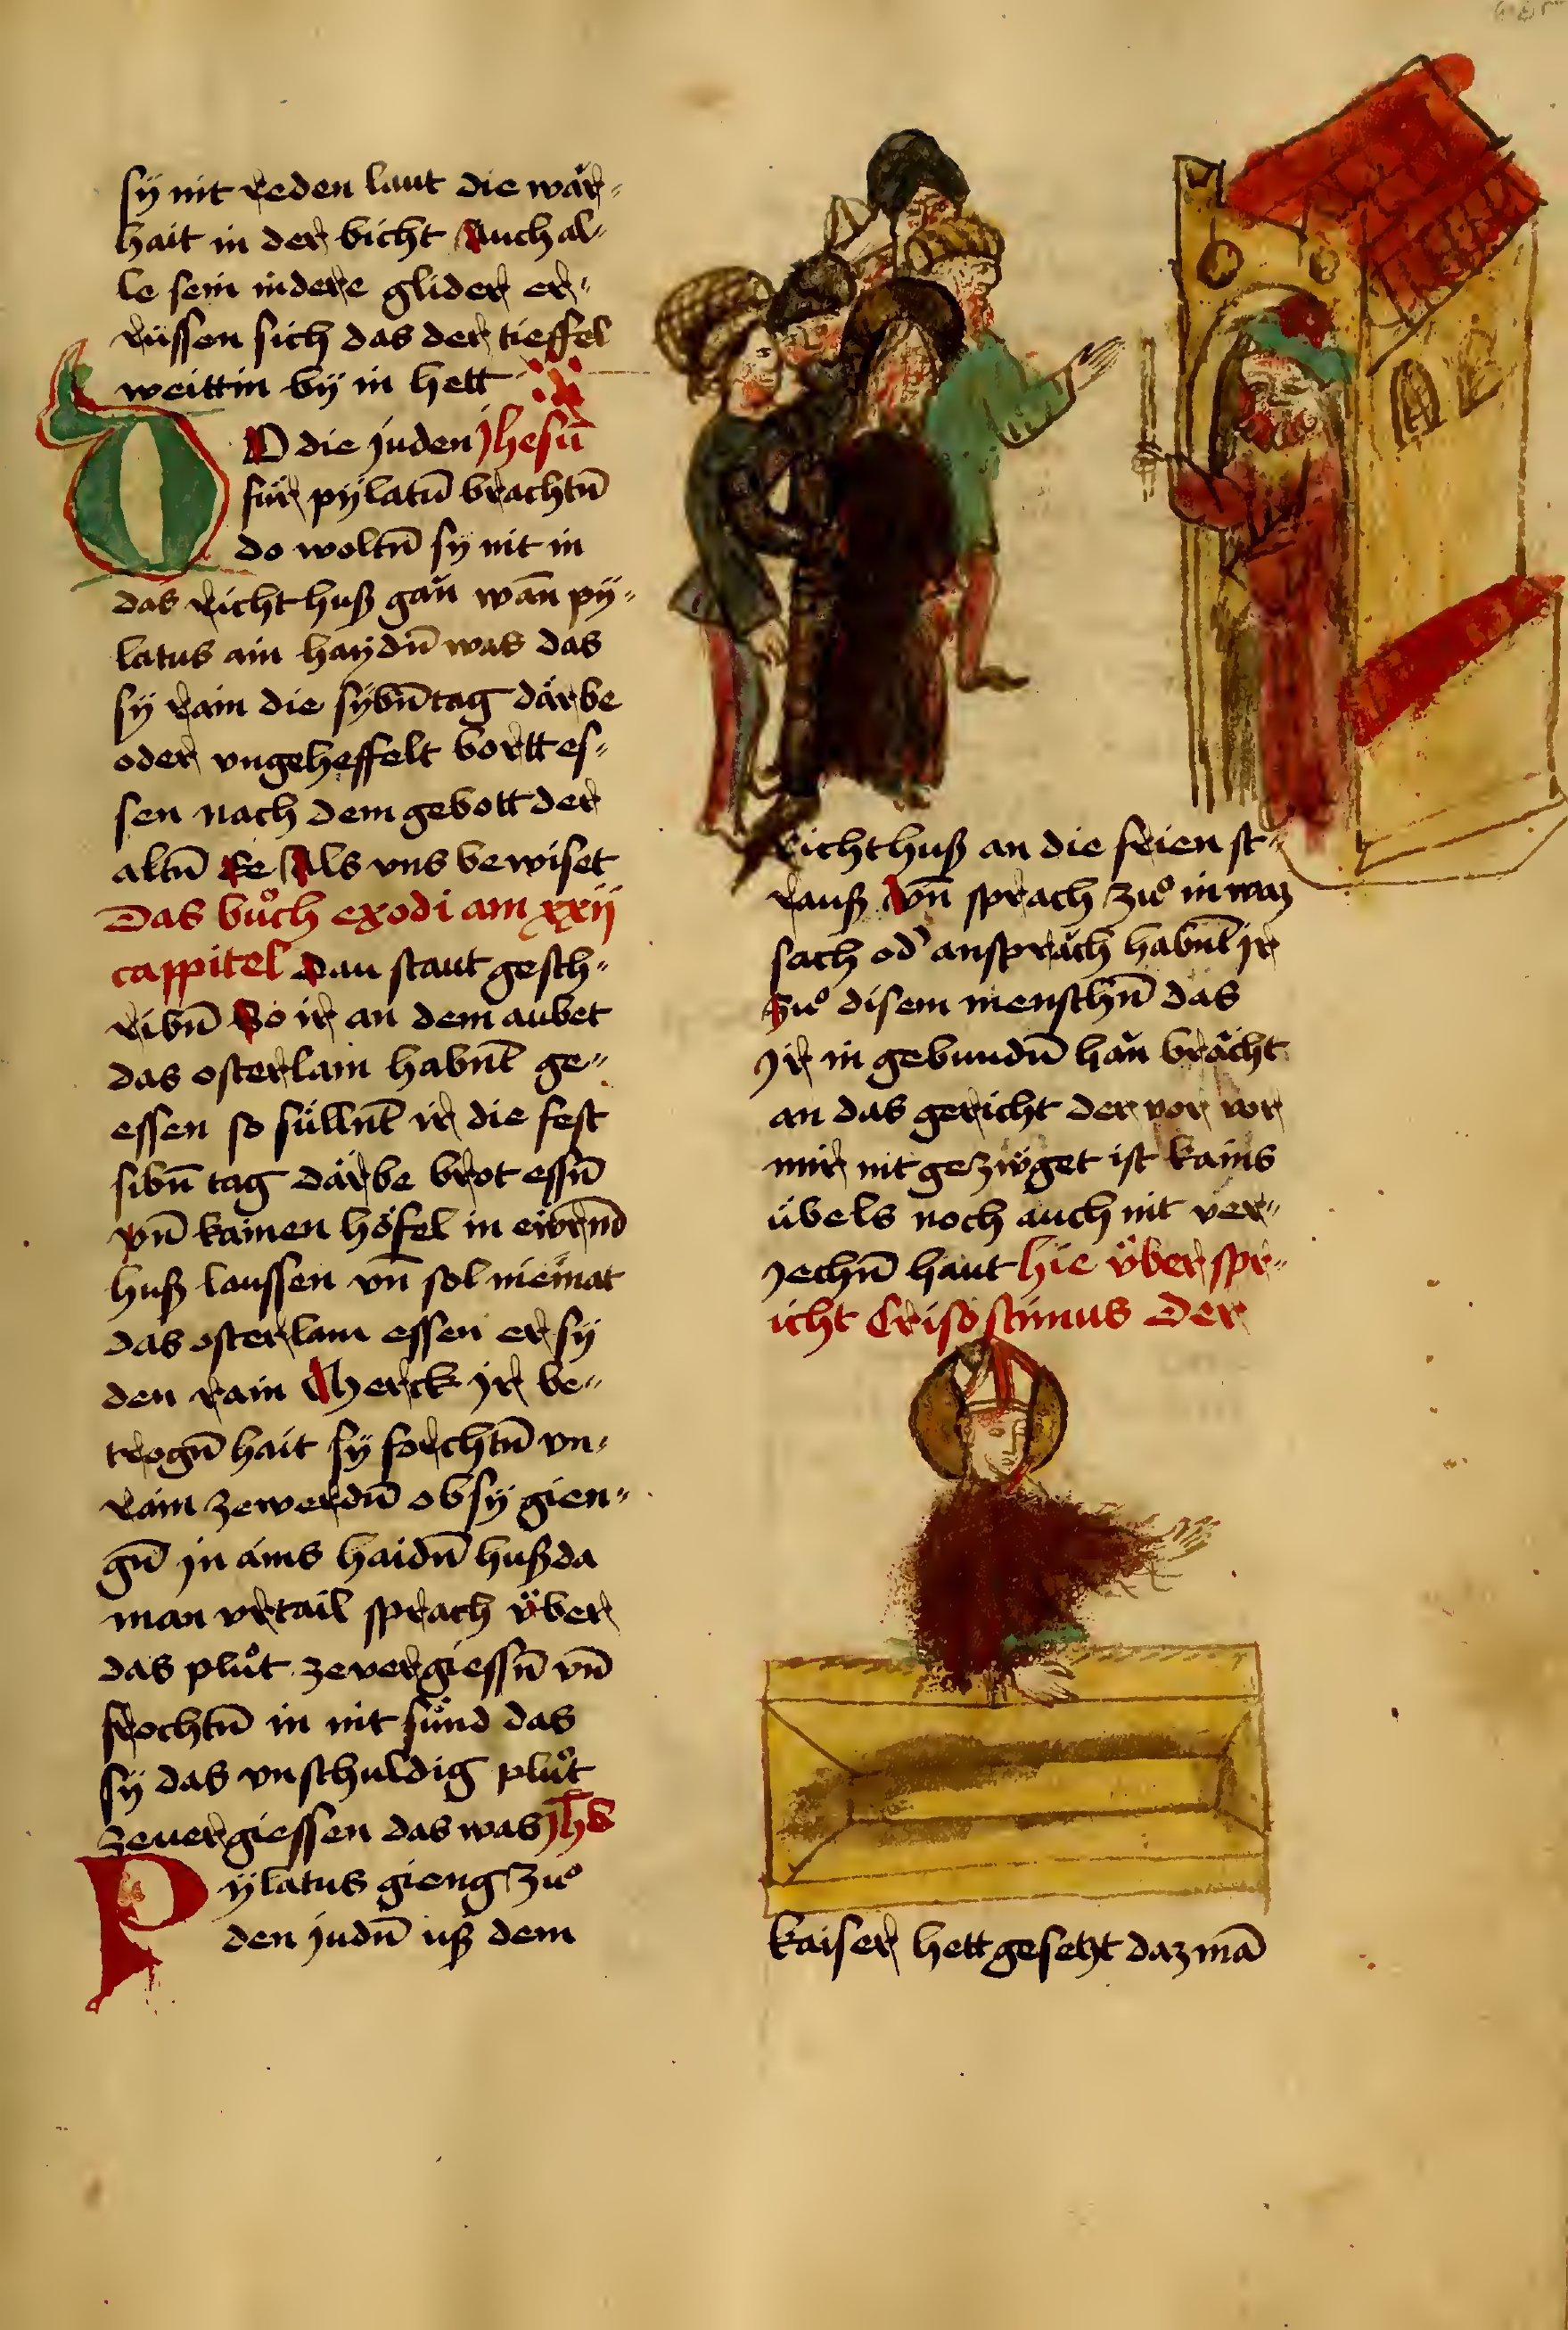 sÿ nit reden laut die wăr⸗
hait in der bicht Auch al⸗
le sein indere glider er⸗
rüssen sich das der tieffel
weittin bÿ in hett
DO die juden Jhesū
für pÿlatū brachtn̄
do woltn̄ sÿ nit in
das richthuß găn wān pÿ⸗
latus ain haÿdn̄ was das
sÿ rain die sÿbn̄ tag därbe
oder vngeheffelt bortt es⸗
sen nach dem gebott der
altn̄ Ee Als vns bewiset
Das bůch exodi am xxij
cappitel Dau staut gesch⸗
ribn̄ So ir an dem aubet
das osterlam habn̄t ge⸗
essen so süllnt ir die fest
sibn̄ tag därbe brot essn̄
vn̄ kainen höfel in ewrnd
huß laussen vn̄ sol niemat
das osterlam essen er sÿ
den rain Merck Jr be⸗
trogn̄ hait sÿ forchtn̄ vn⸗
rain zewerdn̄ ob sÿ gien⸗
gn̄ jn ains haidn̄ huß da
man vrtail sprach v̈ber
das plůt zevergiessn̄ vn̄
frochtn̄ in nit sünd das
sÿ das vnschuldig plůt
zeuergiessen das was Jhs
Pÿlatus gieng zů
den judn̄ uß dem
richthuß an die freien st⸗
rauß Vn̄ sprach zů in waz
sach od' anspräch habn̄t jr
Zů disem menschn̄ das
Jr in gebundn̄ hăn brăcht
an das gericht der vor vor
mir nit gezwget ist kains
übels noch auch nit ver⸗
jechn̄ haut hie v̈ber spr⸗
icht Crisostimus Der
kaiser hett gesetzt daz mā